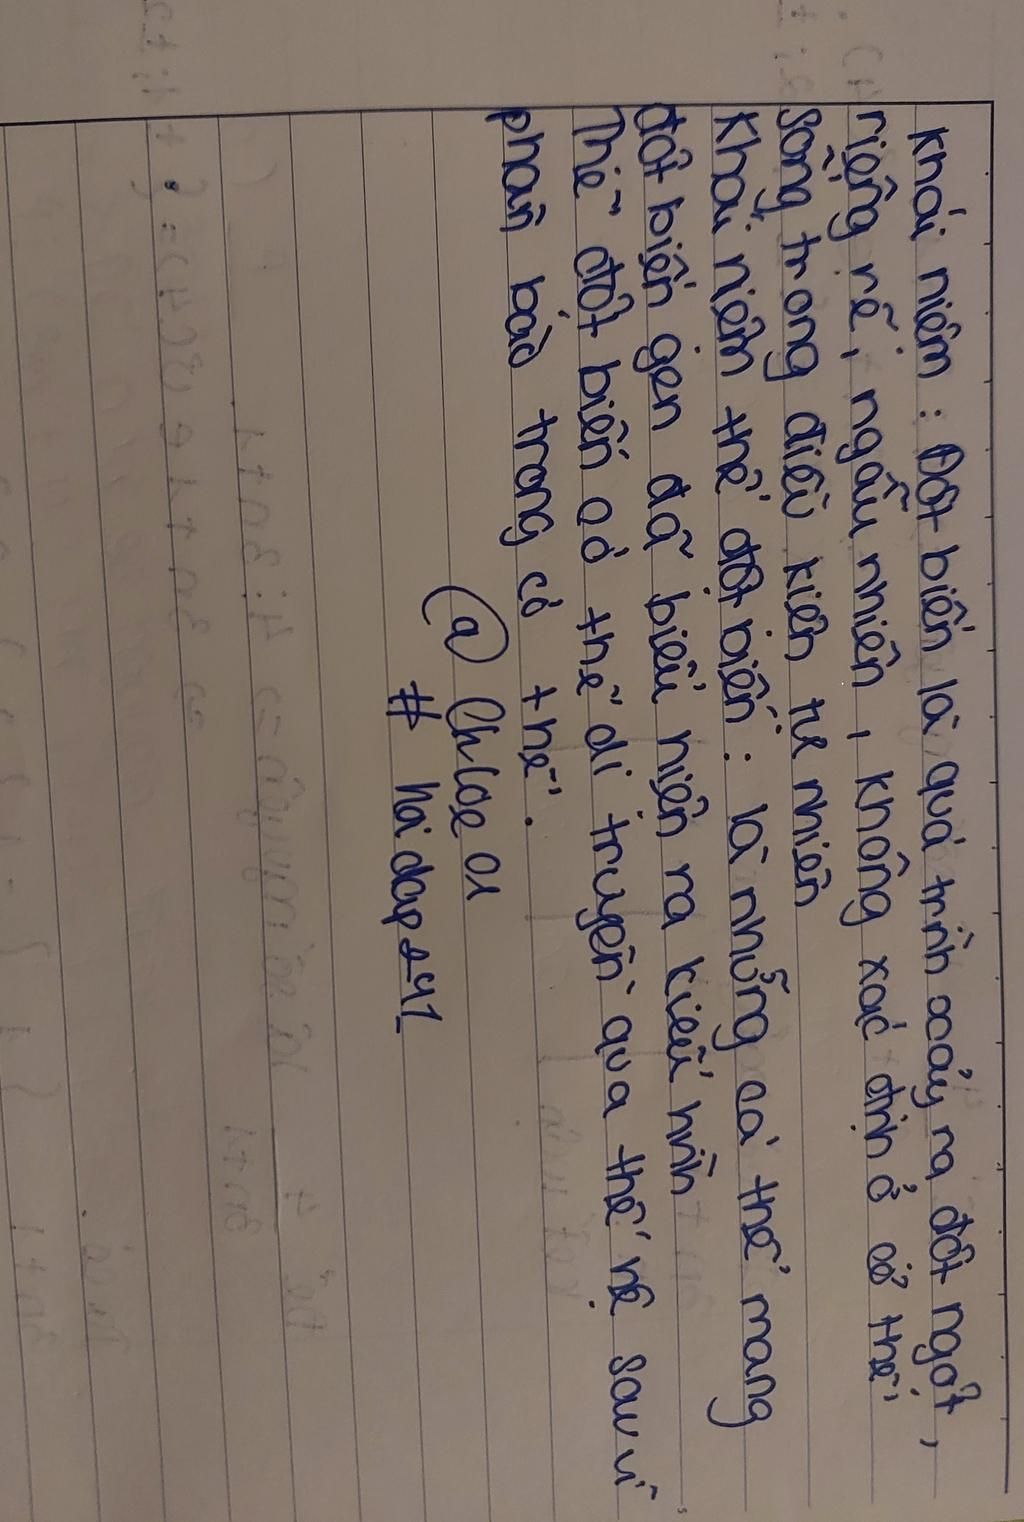 Khái niệm : Đột biến là quá trình xảy ra đột ngột,
riêng rẽ, ngẫu nhiên, không xác định ở cơ thể
sống trong điều kiện tự nhiên
Khái niệm thể đột biến : là những cá thể mang
đột biến gen đã biểu hiện ra kiểu hình
Thể đột biến có thể di truyền qua thế hệ sau vì
phân bào trong cơ thể.
@ Chloe
# hoidap247